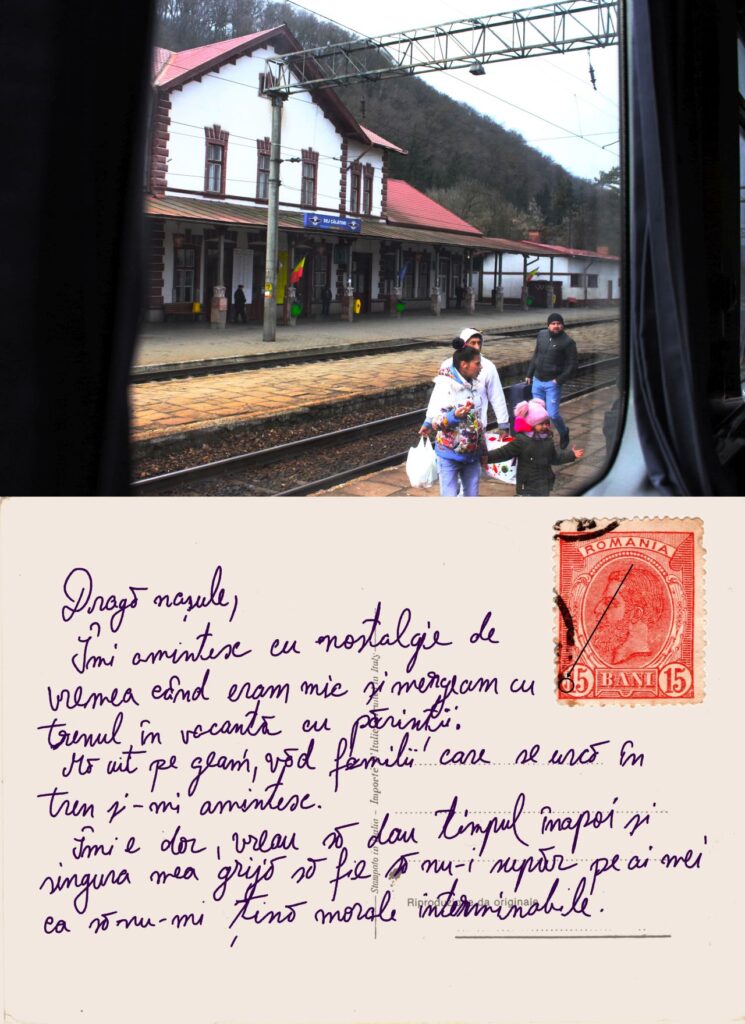 DEJ CĂLĂTORI
ROMANIA
15 BANI 15
Dragă nașule,
Îmi amintesc cu nostalgie de
vremea când eram mic și mergeam cu
trenul în vacanță cu părinții.
Mă uit pe geam, văd familii care se urcă în
tren și-mi amintesc.
Îmi e dor, vreau să dau timpul înapoi și
singura mea grijă să fie să nu-i supăr pe ai mei
ca să-nu-mi țină morale interminabile.
Stampato in Italia - Importé d'Italie - in Italy
Riproduzione da originale